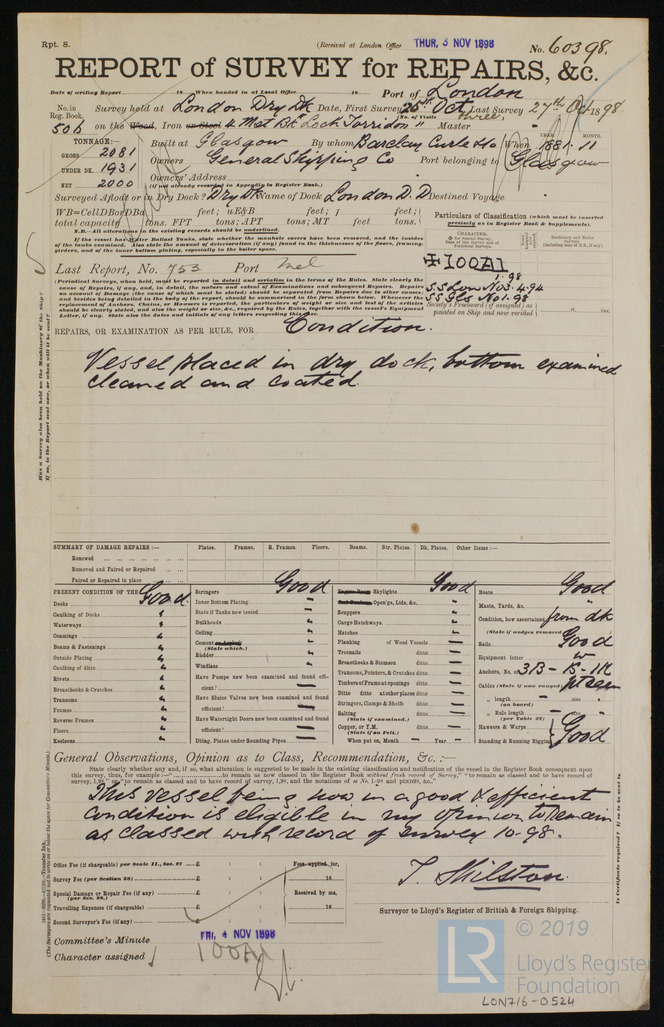 Rpt. 8. (Received at London Office THUR, 3 NOV 1898 No. 60398.
REPORT of SURVEY for REPAIRS, &c.
Date of writing Report 18 When handed in at Local Office 18 Port of London
No. in Reg. Book. Survey held at London Dry Dk Date, First Survey 25th Oct Last Survey 27th Oct 1898
(No. of Visits three)
506 on the Wood, Iron or Steel 4 Mst Bk "Loch Torridon" Master
TONNAGE:— Built at Glasgow By whom Barclay Curle & Co When 1881. 11
YEAR. MONTH.
GROSS 2081 Owners General Shipping Co Port belonging to Glasgow
UNDER DK. 1931 Owners' Address
NET 2000 (if not already recorded in Appendix to Register Book.)
Surveyed Afloat or in Dry Dock? Dry Dk Name of Dock London D. D Destined Voyage
WB=CellDBorDBa feet; uE&B feet; feet;
total capacity tons. FPT tons; APT tons; MT feet tons.
N.B.—All alterations in the existing records should be underlined.
If the vessel has Water Ballast Tanks, state whether the manhole covers have been removed, and the insides
of the tanks examined. Also state the amount of deterioration (if any) found in the thicknesses of the floors, framing,
girders, and of the inner bottom plating, especially in the boiler space.
Particulars of Classification (which must be inserted
precisely as in Register Book & Supplements).
✠100A1
1.98
S.S Lon No3-4.94
SS Gls No1-98
Society's Freeboard (if assigned) as
painted on Ship and now verified
Last Report, No. 753 Port Mel
(Periodical Surveys, when held, must be reported in detail and seriatim in the terms of the Rules. State clearly the
cause of Repairs, if any, and, in detail, the nature and extent of Examinations and subsequent Repairs. Repairs
on account of Damage (the cause of which must be stated) should be separated from Repairs due to other causes,
and besides being detailed in the body of the report, should be summarized in the form shown below. Whenever the
replacement of Anchors, Chains, or Hawsers is reported, the particulars of weight or size and test of the articles
should be clearly stated, and also the weight or size, &c., required by the Rules, together with the vessel's Equipment
Letter, if any. State also the dates and initials of any letters respecting this case.
REPAIRS, OR EXAMINATION AS PER RULE, FOR Condition.
Vessel placed in dry dock, bottom examined
cleaned and coated.
SUMMARY OF DAMAGE REPAIRS :— Plates. Frames. R. Frames. Floors. Beams. Str. Plates. Dk. Plates. Other Items :—
Renewed
Removed and Faired or Repaired
Faired or Repaired in place
PRESENT CONDITION OF THE Good
Decks
Caulking of Decks
Waterways
Coamings
Beams & Fastenings
Outside Plating
Caulking of ditto
Rivets
Breasthooks & Crutches
Transoms
Frames
Reverse Frames
Floors
Keelsons
Stringers Good
Inner Bottom Plating
State if Tanks now tested
Bulkheads
Ceiling
Cement or Asphalt (State which.)
Rudder
Windlass
Have Pumps now been examined and found efficient?
Have Sluice Valves now been examined and found efficient?
Have Watertight Doors now been examined and found efficient?
Dblng. Plates under Sounding Pipes
Engine Room Skylights Good
Coal Bunkers Open'gs, Lids, &c.
Scuppers
Cargo Hatchways
Hatches
Planking of Wood Vessels
Treenails ditto
Breasthooks & Stemson ditto
Transoms, Pointers, & Crutches ditto
Timbers of Frame at openings ditto
Ditto ditto at other places ditto
Stringers, Clamps & Shelfs ditto
Salting ditto
(State if examined.)
Copper, or Y.M. ditto
(State if on Felt.)
When put on, Month — Year —
Boats Good
Masts, Yards, &c.
Condition, how ascertained from dk
(State if wedges removed)
Sails Good
Equipment letter W
Anchors, No. of 3B-1S-1K
Cables (State if now ranged)
" length size
(on board)
" Rule length size
(per Table 22)
Hawsers & Warps
Standing & Running Rigging Good
General Observations, Opinion as to Class, Recommendation, &c. :—
State clearly whether any and, if so, what alteration is suggested to be made in the existing classification and notification of the vessel in the Register Book consequent upon
this survey, thus, for example:—" to remain as now classed in the Register Book without fresh record of Survey," "to remain as classed and to have record of
survey, 1,98," or "to remain as classed and to have record of survey, 1,98, and the notations of ss No. 1,98 and ptND98, &c."
This vessel being now in a good & efficient
condition is eligible in my opinion to remain
as classed with record of survey 10.98.
Office Fee (if chargeable) per Scale II., Sec. 27 £ Fees applied for,
Survey Fee (per Section 28) £ 18
Special Damage or Repair Fee (if any) £ Received by me,
(per Sec. 28.)
Travelling Expenses (if chargeable) £ 18
Second Surveyor's Fee (if any) £
T. Shilston.
Surveyor to Lloyd's Register of British & Foreign Shipping.
Committee's Minute FRI, 4 NOV 1898
Character assigned 100A1
© 2019
LR
Lloyd's Register
Foundation
LON716-0524